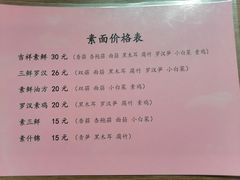 素面价格表
吉祥素鲜 30 元（香菇 杏鲍菇 面筋 黑木耳 腐竹 罗汉笋 小白菜 素鸡）
三鲜罗汉 26 元（双菇 面筋 黑木耳 腐竹 罗汉笋 小白菜）
素鲜油方 20 元（双菇 面筋 素鸡）
罗汉素鸡 20 元（黑木耳 罗汉笋 腐竹 素鸡）
素三鲜 15 元（香菇 杏鲍菇 面筋 小白菜）
素什锦 15 元（香笋 黑木耳 腐竹）